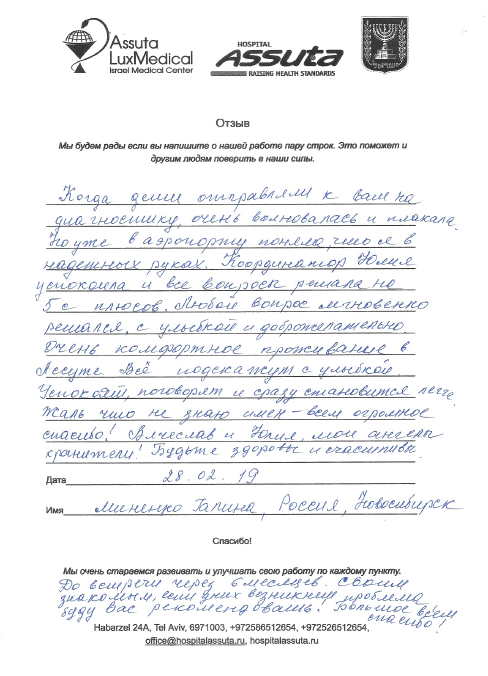 Assuta
LuxMedical
Israel Medical Center
HOSPITAL
Assuta
RAISING HEALTH STANDARDS
Отзыв
Мы будем рады если вы напишите о нашей работе пару строк. Это поможет и
другим людям поверить в наши силы.
Когда дети отправляли к вам на
диагностику, очень волновалась и плакала.
Но уже в аэропорту поняла, что я в
надежных руках. Координатор Юлия
успокоила и все вопросы решала на
5 с плюсов. Любой вопрос мгновенно
решался, с улыбкой и доброжелательно.
Очень комфортное проживание в
Ассуте Всё подскажут с улыбкой.
Успокоят, поговорят и сразу становится легче.
Жаль что не знаю имен - всем огромное
спасибо! Вячеслав и Юлия, мои ангелы
хранители! Будьте здоровы и счастливы.
Дата 28.02.19
Имя Миненко Галина, Россия, Новосибирск
Спасибо!
Мы очень стараемся развивать и улучшать свою работу по каждому пункту.
До встречи через 6 месяцев. Своим
знакомым, если у них возникнут проблема
буду Вас рекомендовать. Большое всем
спасибо!
Habarzel 24A, Tel Aviv, 6971003, +972586512654, +972526512654,
office@hospitalassuta.ru, hospitalassuta.ru